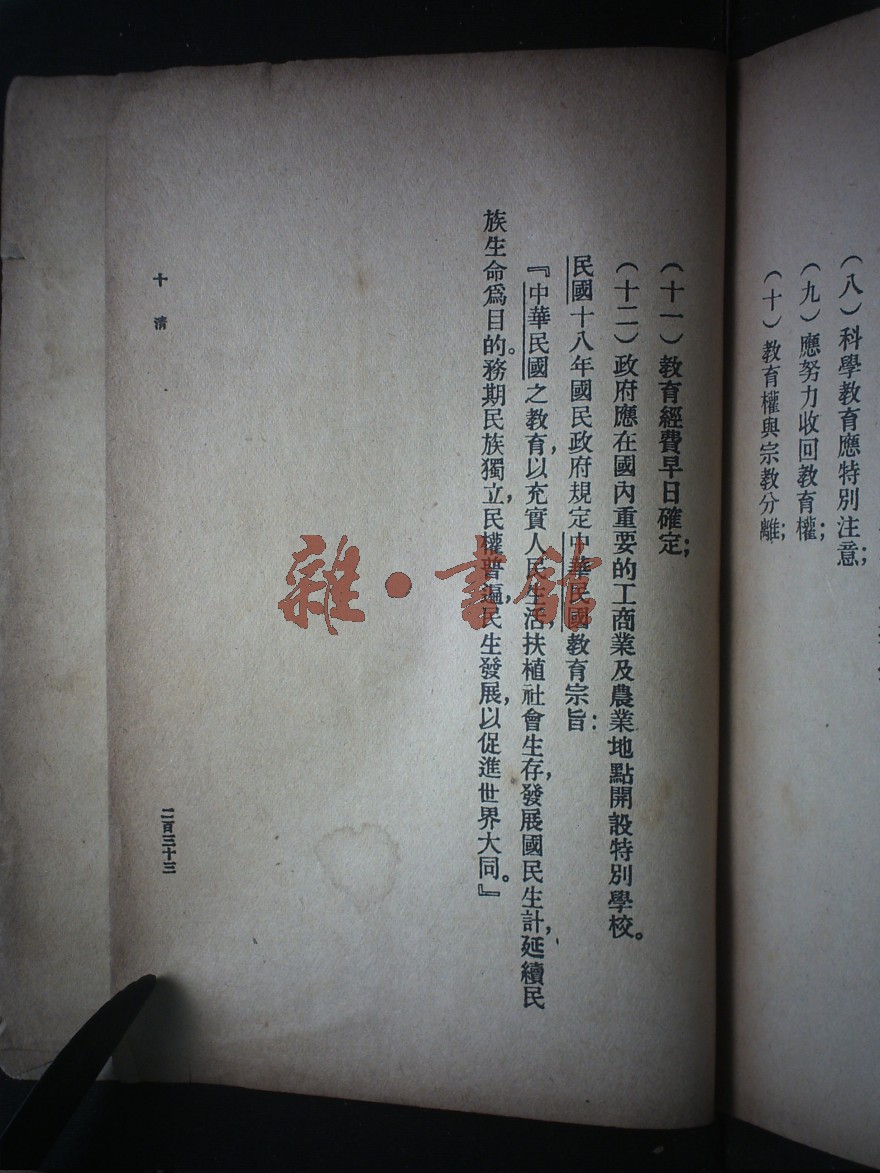 (八)科學教育應特別注意;
(九)應努力收回教育權;
(十)教育權與宗教分離;
(十一)教育經費早日確定;
(十二)政府應在國內重要的工商業及農業地點開設特別學校。
民國十八年國民政府規定中華民國教育宗旨:
『中華民國之教育,以充實人民生活,扶植社會生存,發展國民生計,延續民
族生命爲目的。務期民族獨立,民權普遍,民生發展,以促進世界大同。』
十 清
二百三十三
雜·書館